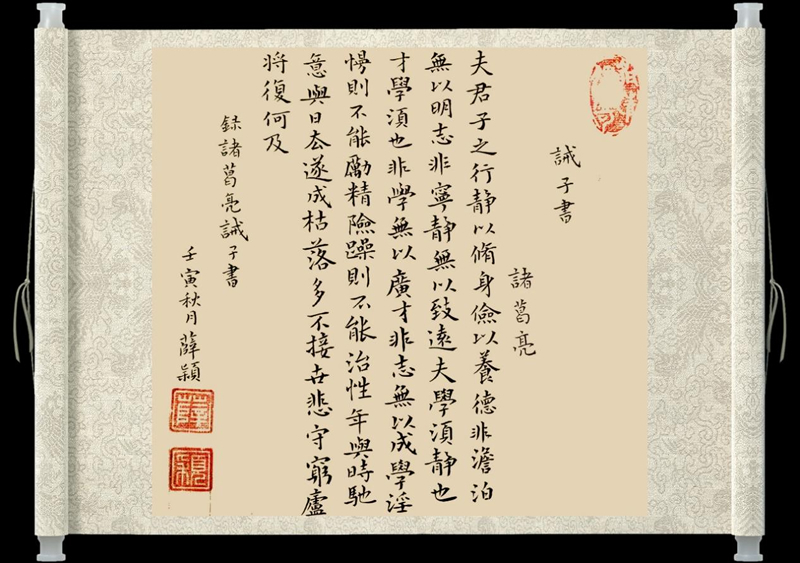 誡子書
諸葛亮
夫君子之行静以脩身儉以養德非澹泊
無以明志非寧静無以致遠夫學湏静也
才學湏也非學無以廣才非志無以成學淫
慢則不能勵精險躁則不能治性年與時馳
意與日去遂成枯落多不接世悲守窮廬
将復何及
録諸葛亮誡子書
壬寅秋月薛穎
薛
穎